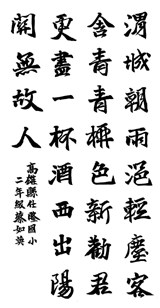 渭城朝雨浥輕塵客
舍青青柳色新勸君
更盡一杯酒西出陽
關無故人
高雄縣仕隆國小
二年級蔡如